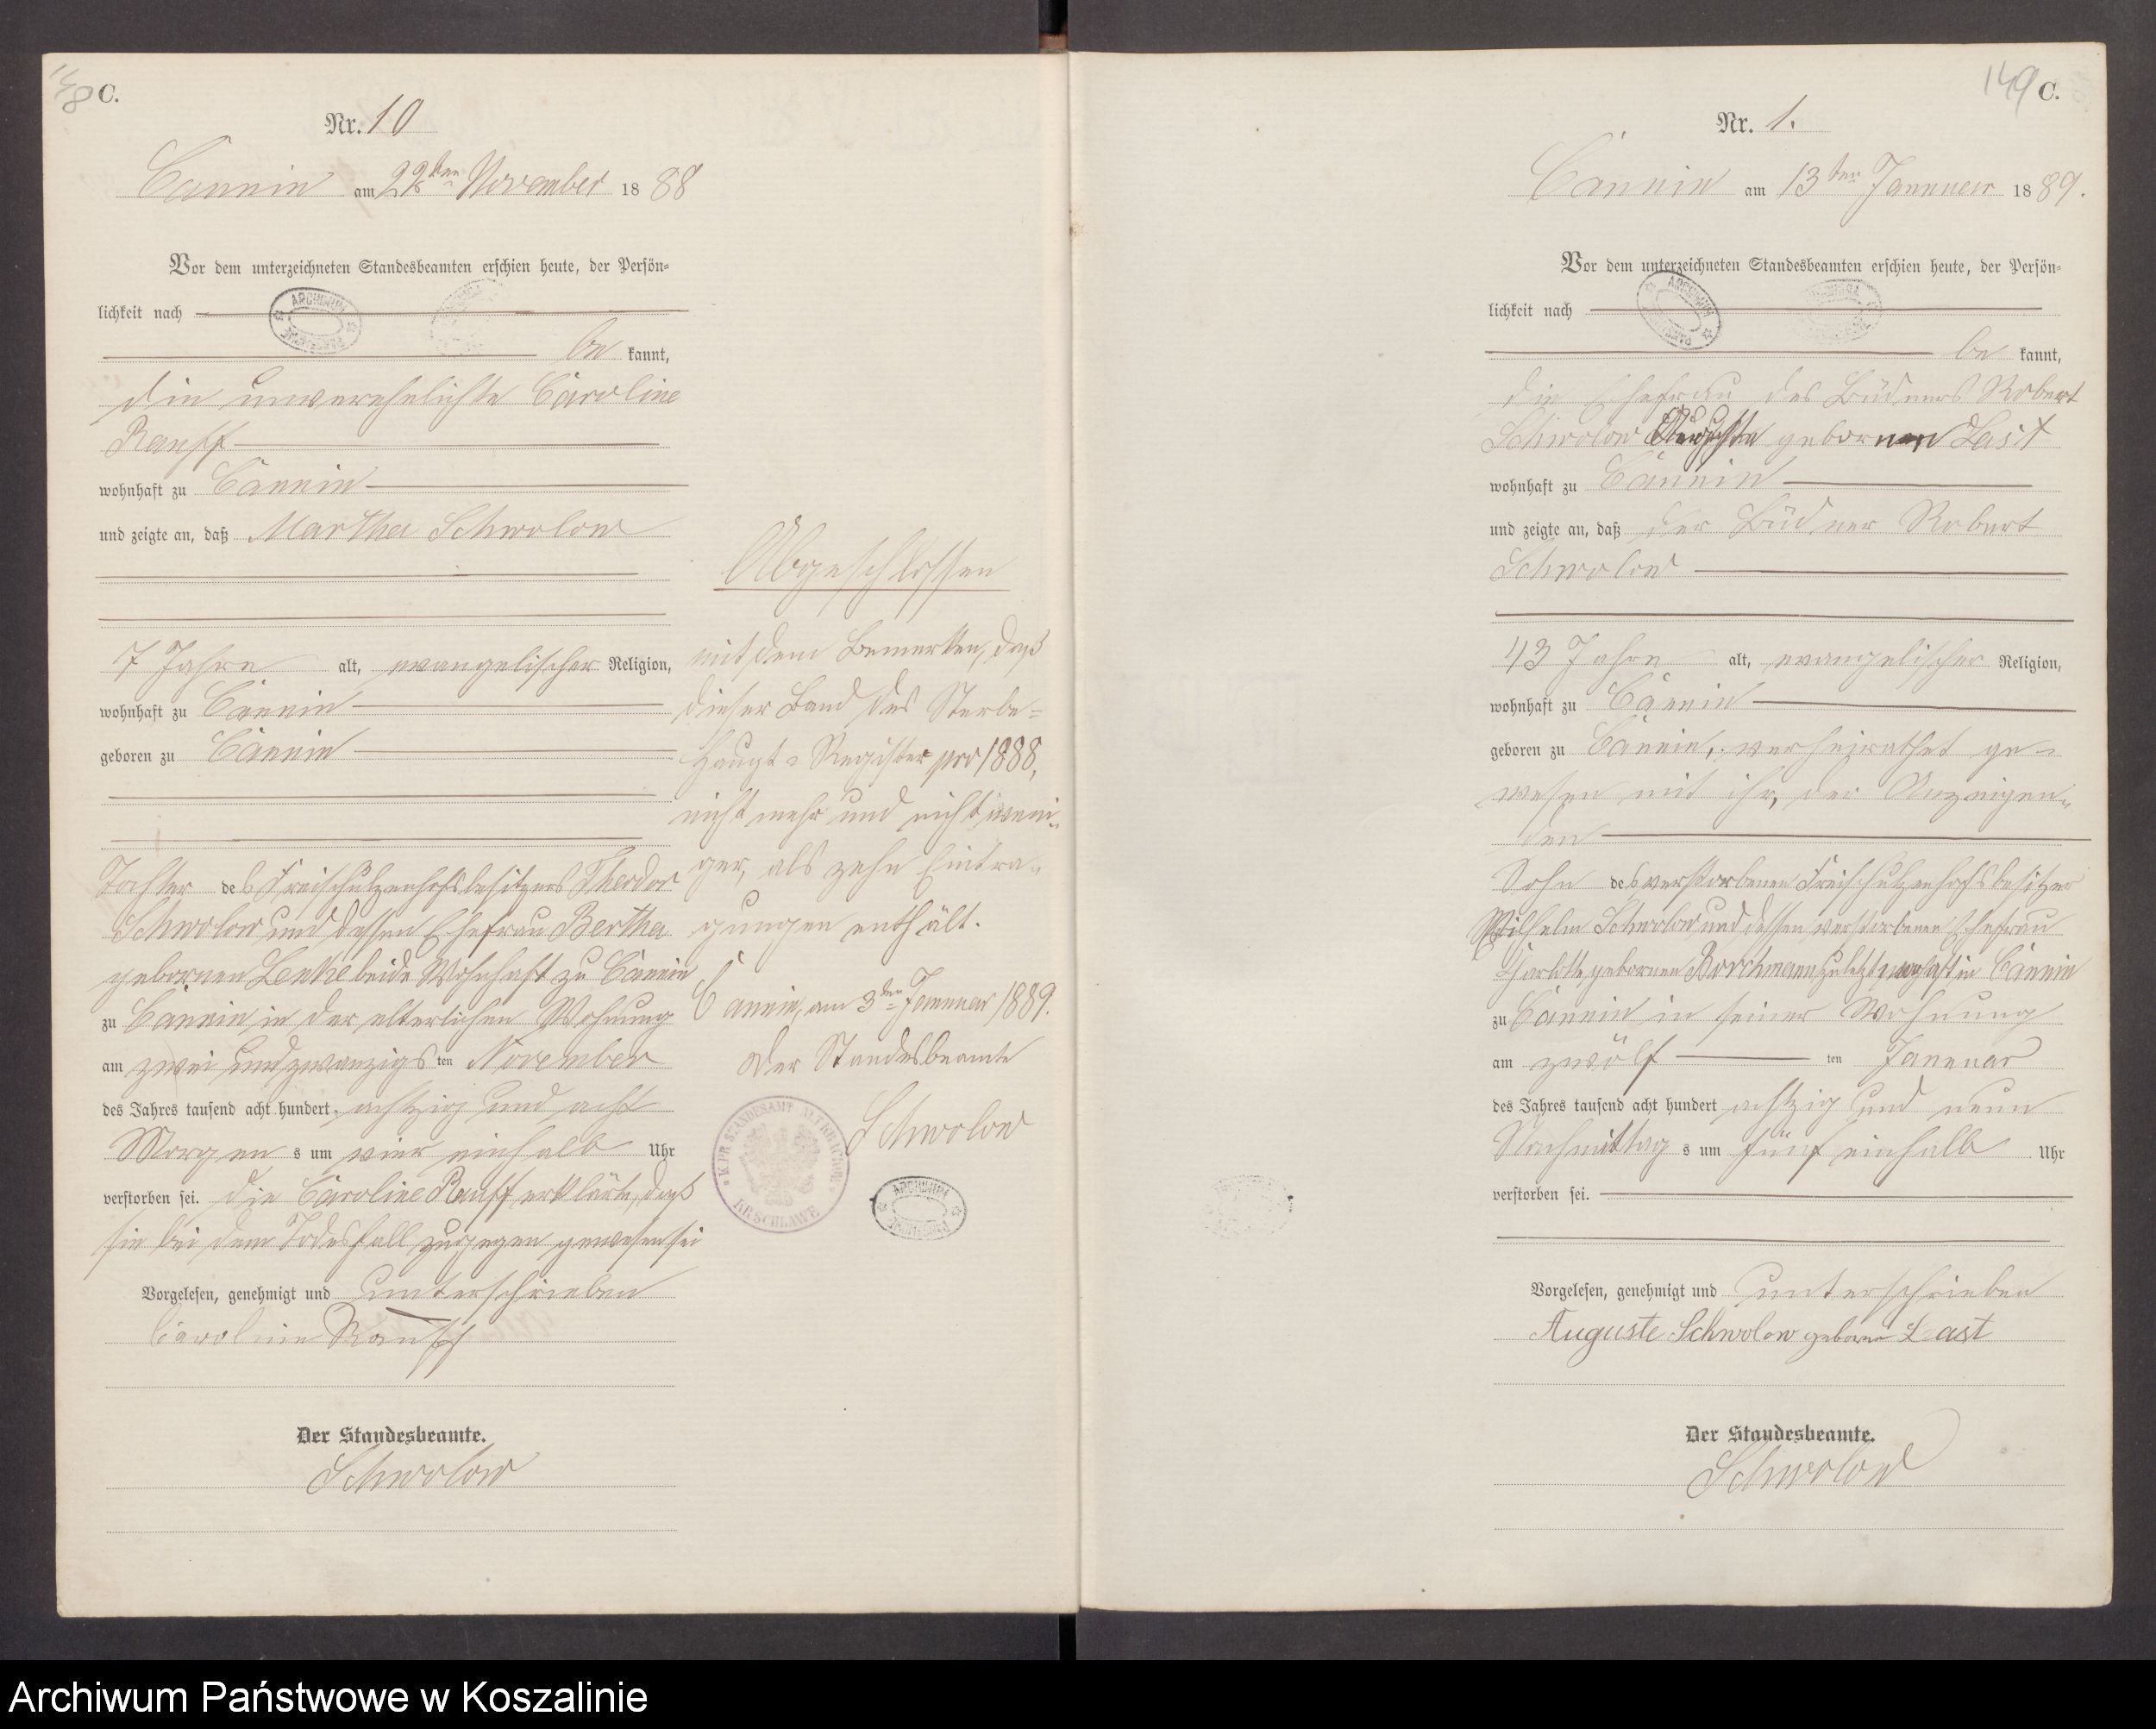 148 C.
Nr. 10
Cannin am 22ten November 1888
Vor dem unterzeichneten Standesbeamten erschien heute, der Persön-
lichkeit nach
be kannt,
die unverehelichte Caroline
Rauff
wohnhaft zu Cannin
und zeigte an, daß Martha Schwolow
7 Jahre alt, evangelischer Religion,
wohnhaft zu Cannin
geboren zu Cannin
Tochter des Freischulzenhofsbesitzers Theodor
Schwolow und dessen Ehefrau Bertha
gebornen Lenke beide wohnhaft zu Cannin
zu Cannin in der elterlichen Wohnung
am zwei und zwanzigsten November
des Jahres tausend acht hundert achtzig und acht
Morgens um vier einhalb Uhr
verstorben sei. Die Caroline Rauff erklärte, daß
sie bei dem Todesfall zugegen gewesen sei
Vorgelesen, genehmigt und unterschrieben
Caroline Rauff
Der Standesbeamte.
Schwolow
Abgeschlossen
mit dem Bemerken, daß
dieser Band des Sterbe-
Haupt-Register pro 1888,
nicht mehr und nicht weni-
ger, als zehn Eintra-
gungen enthält.
Cannin, am 3ten Januar 1889.
Der Standesbeamte
Schwolow
K. PR. STANDESAMT
KR. SCHLAWE
ARCHIWUM
149 C.
Nr. 1.
Cannin am 13ten Januar 1889.
Vor dem unterzeichneten Standesbeamten erschien heute, der Persön-
lichkeit nach
be kannt,
die Ehefrau des Büdners Robert
Schwolow Auguste gebornen Last
wohnhaft zu Cannin
und zeigte an, daß der Büdner Robert
Schwolow
43 Jahre alt, evangelischer Religion,
wohnhaft zu Cannin
geboren zu Cannin, verheirathet ge-
wesen mit ihr, der Anzeigen-
den
Sohn des verstorbenen Freischulzenhofsbesitzer
Wilhelm Schwolow und dessen verstorbenen Ehefrau
Charlotte gebornen Borchmann zuletzt wohnhaft in Cannin
zu Cannin in seiner Wohnung
am zwölf ten Januar
des Jahres tausend acht hundert achtzig und neun
Nachmittags um fünf einhalb Uhr
verstorben sei.
Vorgelesen, genehmigt und unterschrieben
Auguste Schwolow geborne Last
Der Standesbeamte.
Schwolow
Archiwum Państwowe w Koszalinie